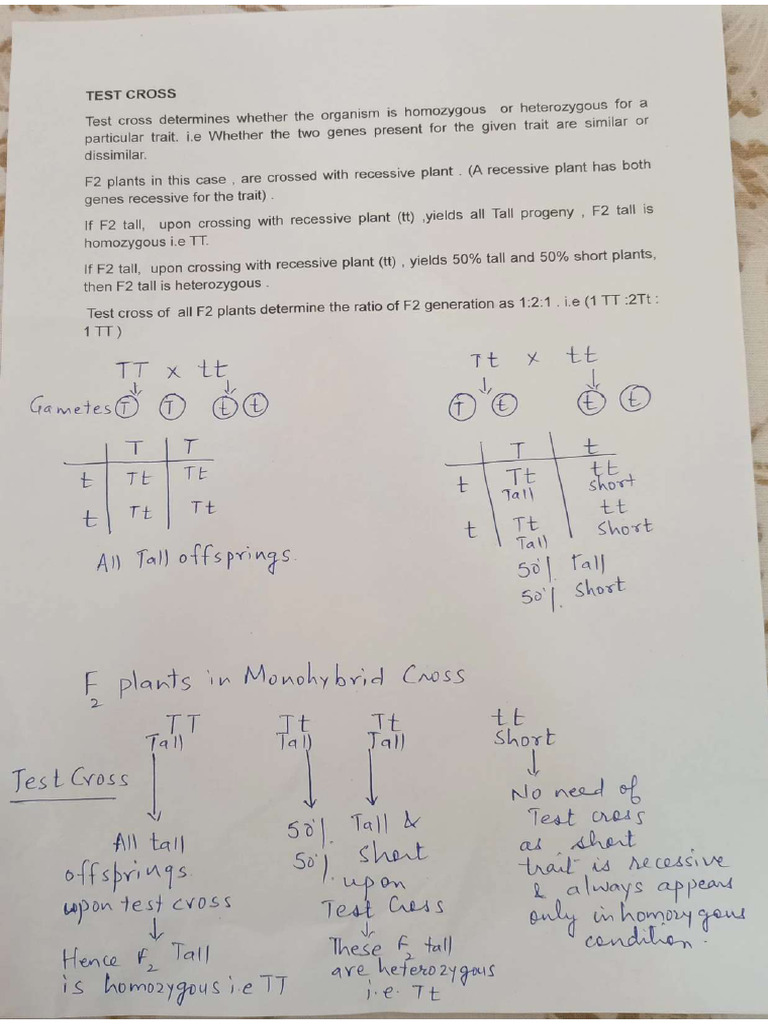 TEST CROSS
Test cross determines whether the organism is homozygous or heterozygous for a
particular trait. i.e Whether the two genes present for the given trait are similar or
dissimilar.
F2 plants in this case , are crossed with recessive plant . (A recessive plant has both
genes recessive for the trait) .
If F2 tall, upon crossing with recessive plant (tt) ,yields all Tall progeny , F2 tall is
homozygous i.e TT.
If F2 tall, upon crossing with recessive plant (tt) , yields 50% tall and 50% short plants,
then F2 tall is heterozygous .
Test cross of all F2 plants determine the ratio of F2 generation as 1:2:1 . i.e (1 TT :2Tt :
1 TT )
TT x tt
Gametes T T t t
T T
t Tt Tt
t Tt Tt
All Tall offsprings.
Tt x tt
T t t t
T t
t Tt tt
Tall short
t Tt tt
Tall Short
50% Tall
50% Short
F2 plants in Monohybrid Cross
TT Tt Tt tt
Tall Tall Tall Short
Test Cross
All tall
offsprings
upon test cross
Hence F2 Tall
is homozygous i.e TT
50% Tall &
50% Short
upon
Test Cross
These F2 tall
are heterozygous
i.e. Tt
No need of
Test cross
as short
trait is recessive
& always appears
only in homozygous
condition.